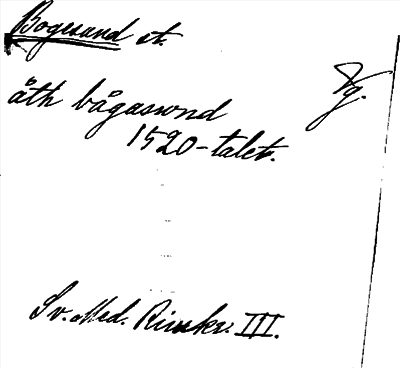 Bogesund st.
Vg.
åth bågaswnd
1520-talet.
Sv. Med. Rimkr. III.